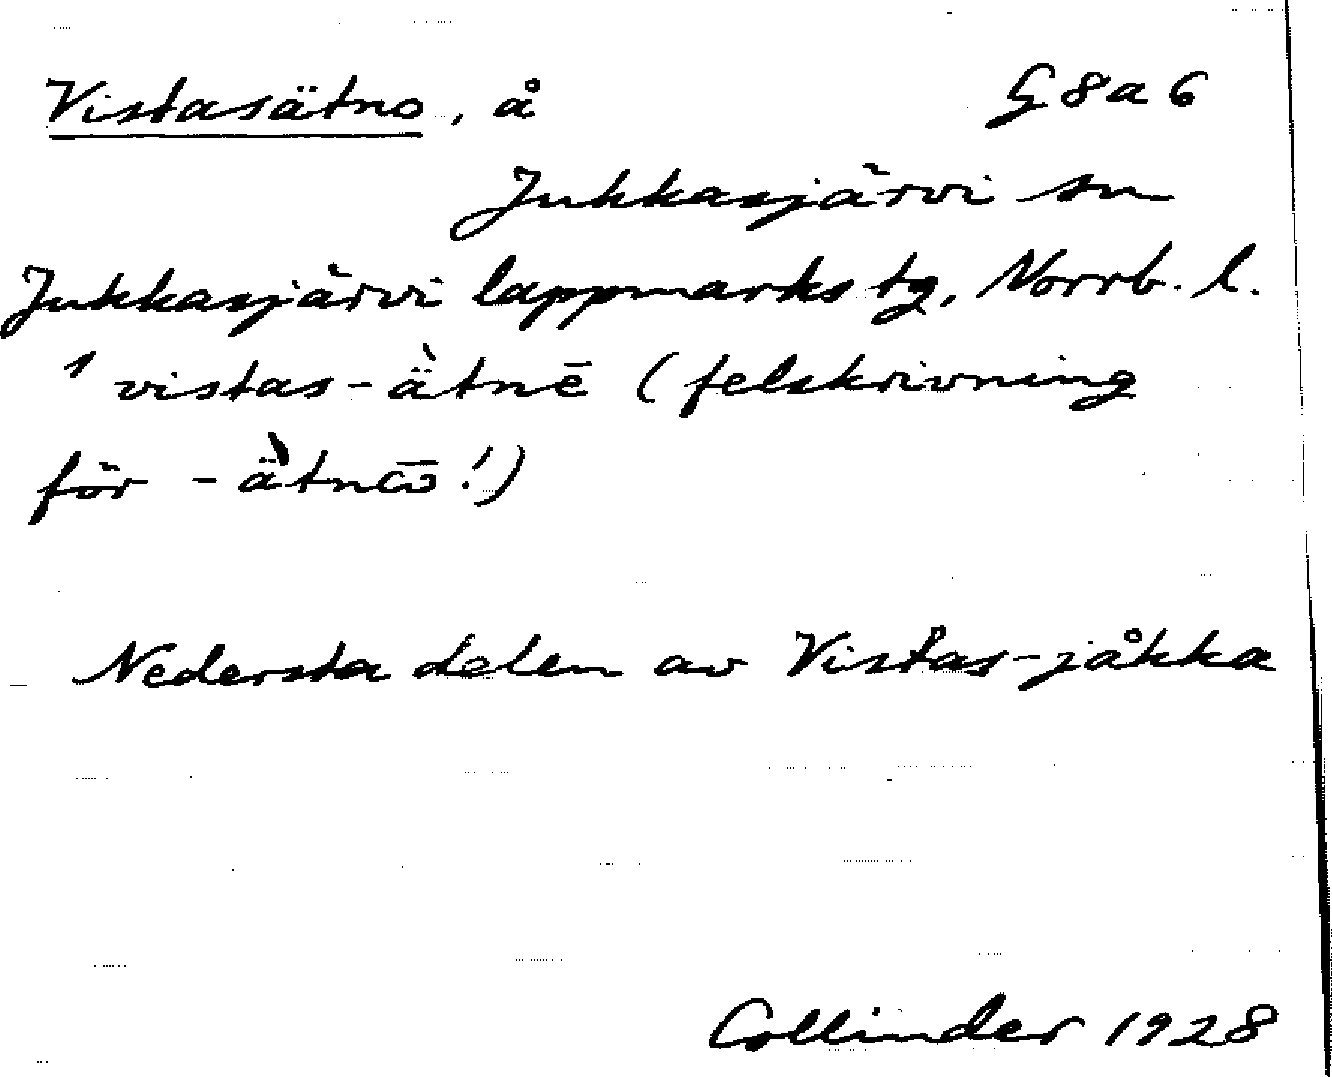 Vistasätno, å G8a6
Jukkasjärvi sn
Jukkasjärvi lappmarks tg, Norrb. l.
ˈvistas-ä̀tnē (felskrivning
för -ä̀tnɷ̄!)
Nedersta delen av Vistas-jåkka
Collinder 1928